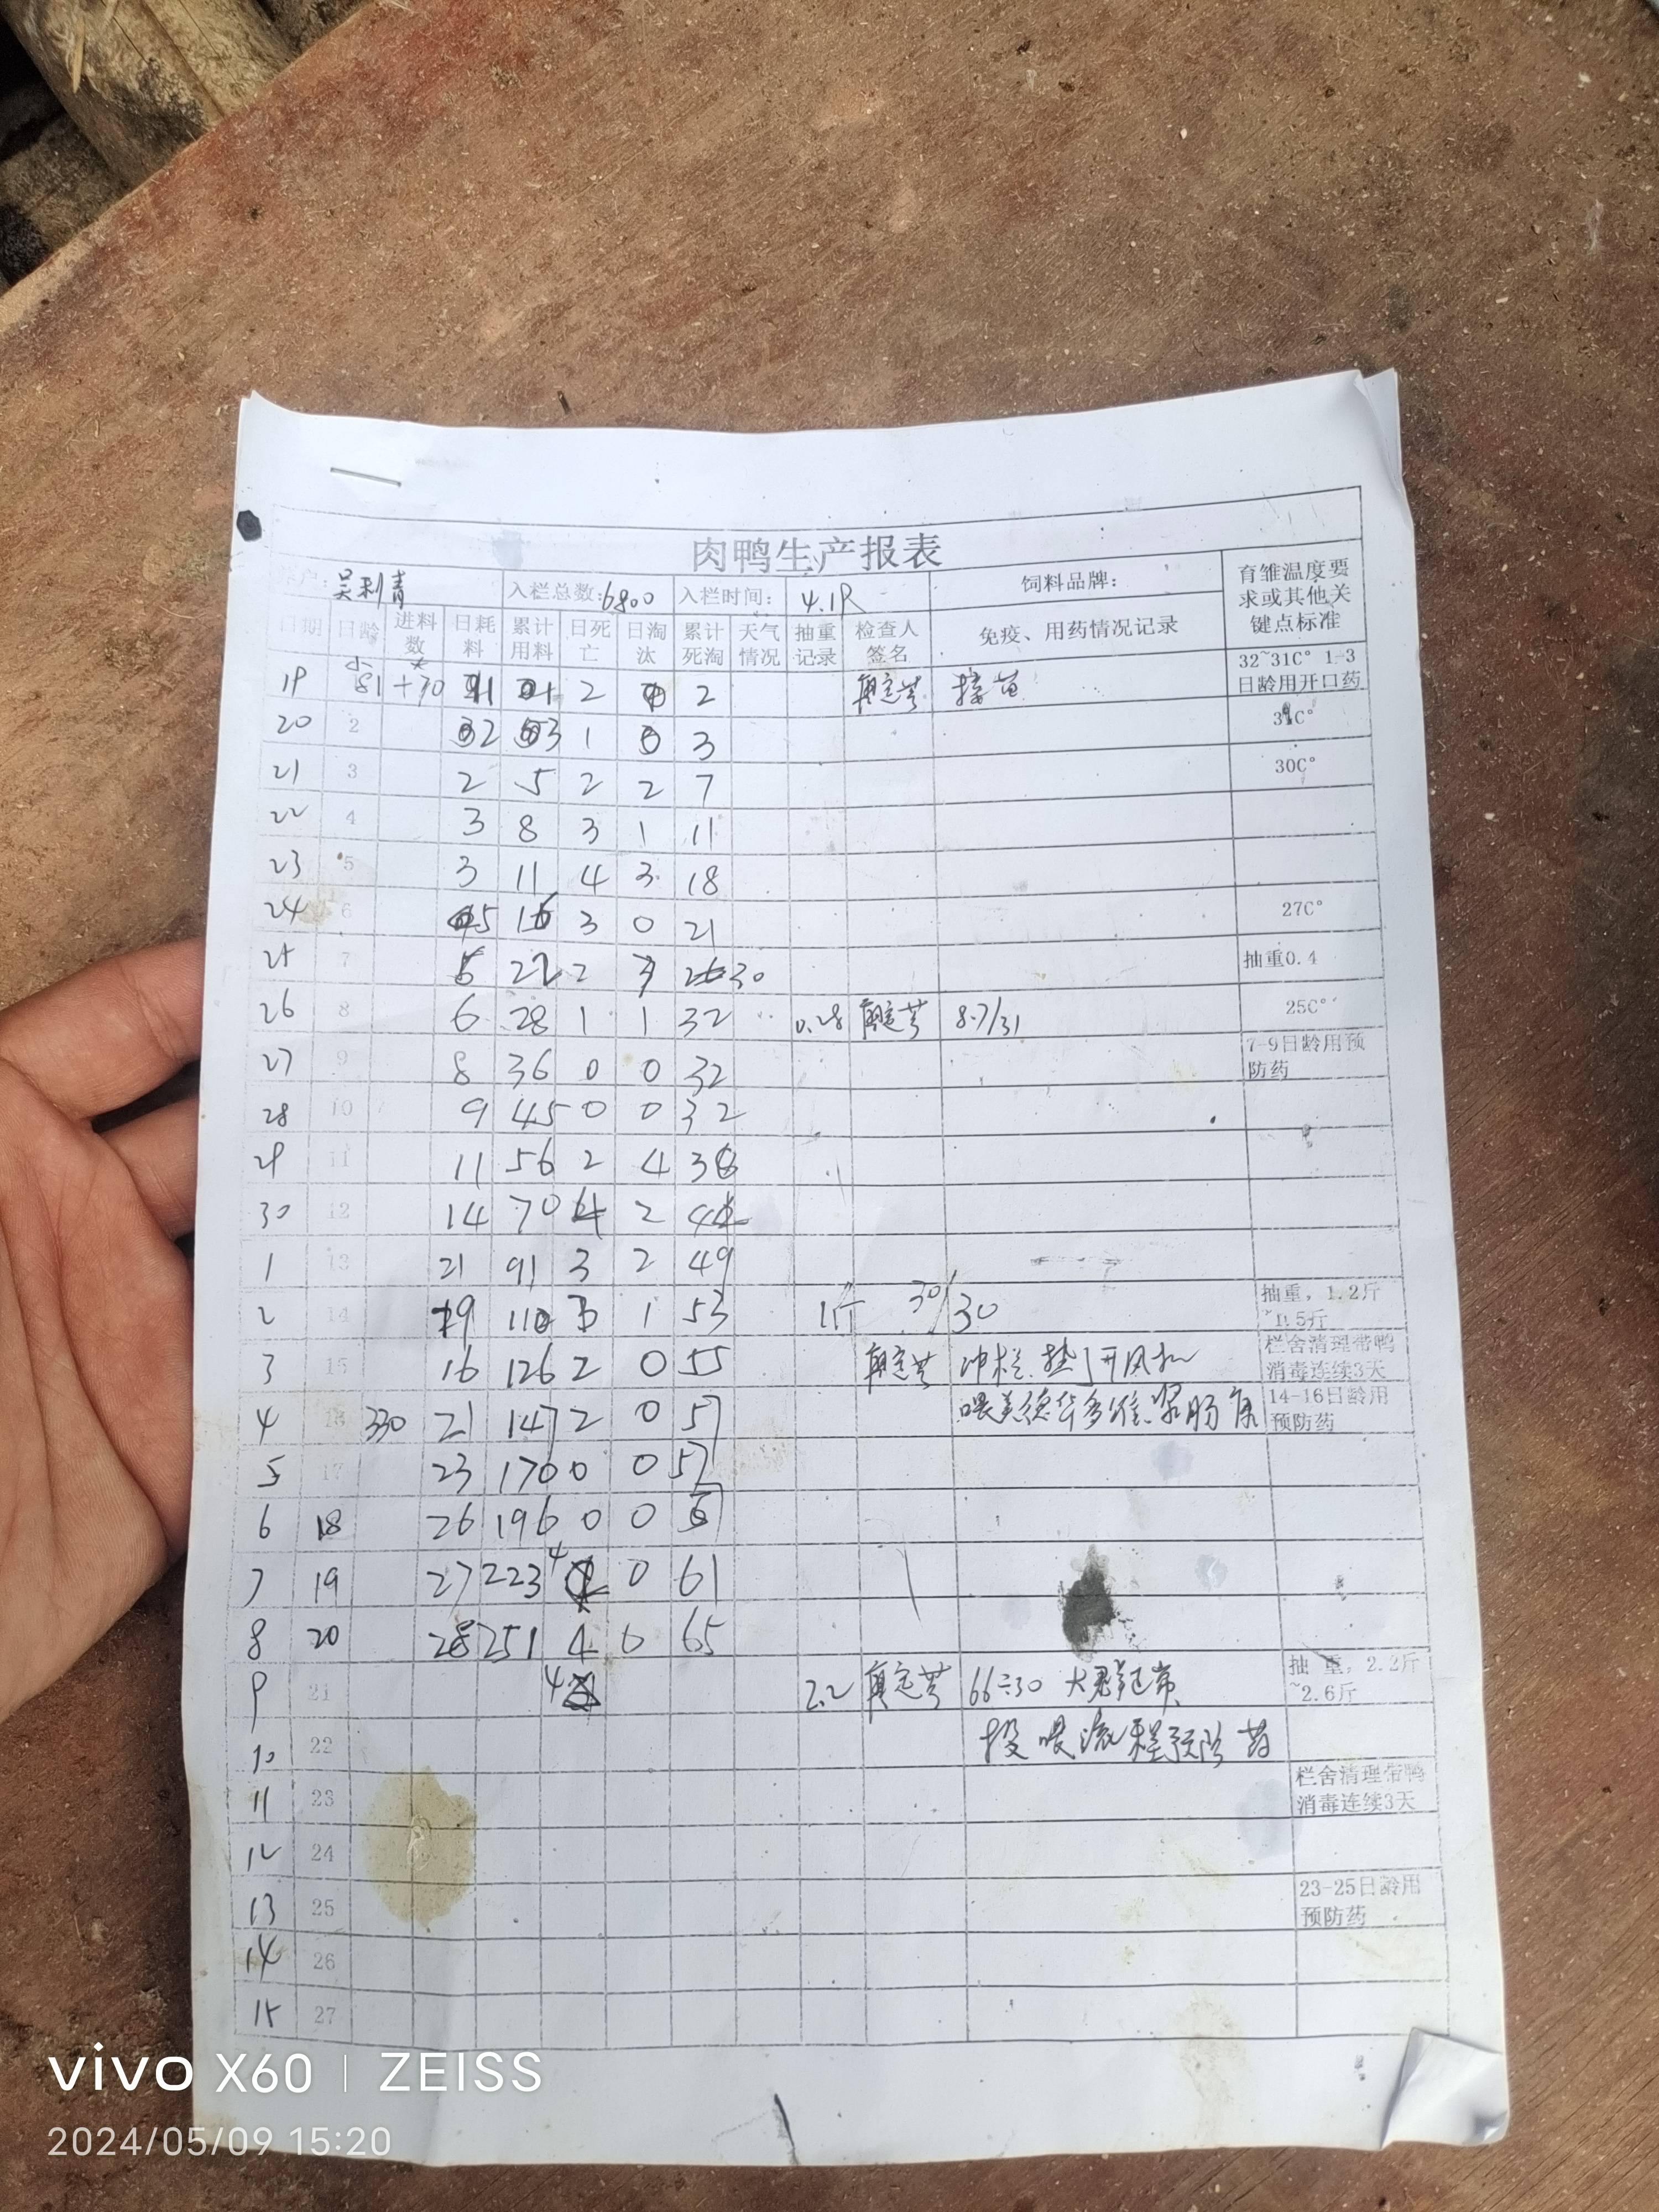 肉鸭生产报表
户: 吴利青 入栏总数: 6800 入栏时间: 4.19 饲料品牌: 育雏温度要求或其他关键点标准
日期 日龄 进料数 日耗料 累计用料 日死亡 日淘汰 累计死淘 天气情况 抽重记录 检查人签名 免疫、用药情况记录
19 1 2 2 接苗 32~31C° 1-3日龄用开口药
20 2 2 3 1 3
21 3 2 5 2 2 7 30C°
22 4 3 8 3 1 11
23 5 3 11 4 3 18
24 6 5 16 3 0 21 27C°
25 7 22 2 30 抽重0.4
26 8 6 28 1 1 32 0.28 8.7/31 25C°
27 9 8 36 0 0 32 7-9日龄用预防药
28 10 9 45 0 0 32
29 11 11 56 2 4
30 12 14 70 2
1 13 21 91 3 2 49
2 14 19 110 3 1 53 1斤 30/30 抽重, 1.2斤~1.5斤
3 15 16 126 2 0 55 冲栏 开风机 栏舍清理带鸭消毒连续3天
4 16 330 21 147 2 0 57 14-16日龄用预防药
5 17 23 170 0 0 57
6 18 26 196 0 0
7 19 27 223 4 0 61
8 20 28 251 4 0 65
9 21 4 2.2 66÷30 大群正常 抽重, 2.2斤~2.6斤
10 22 投喂流程预防药
11 23 栏舍清理带鸭消毒连续3天
12 24
13 25 23-25日龄用预防药
14 26
15 27
vivo X60 | ZEISS
2024/05/09 15:20